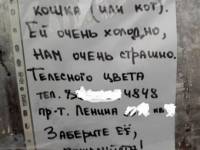 кошка (или кот).
Ей очень холодно,
нам очень страшно.
Телесного цвета
тел. 4848
пр-т. Ленина кв.
Заберите её,
пожалуйста!